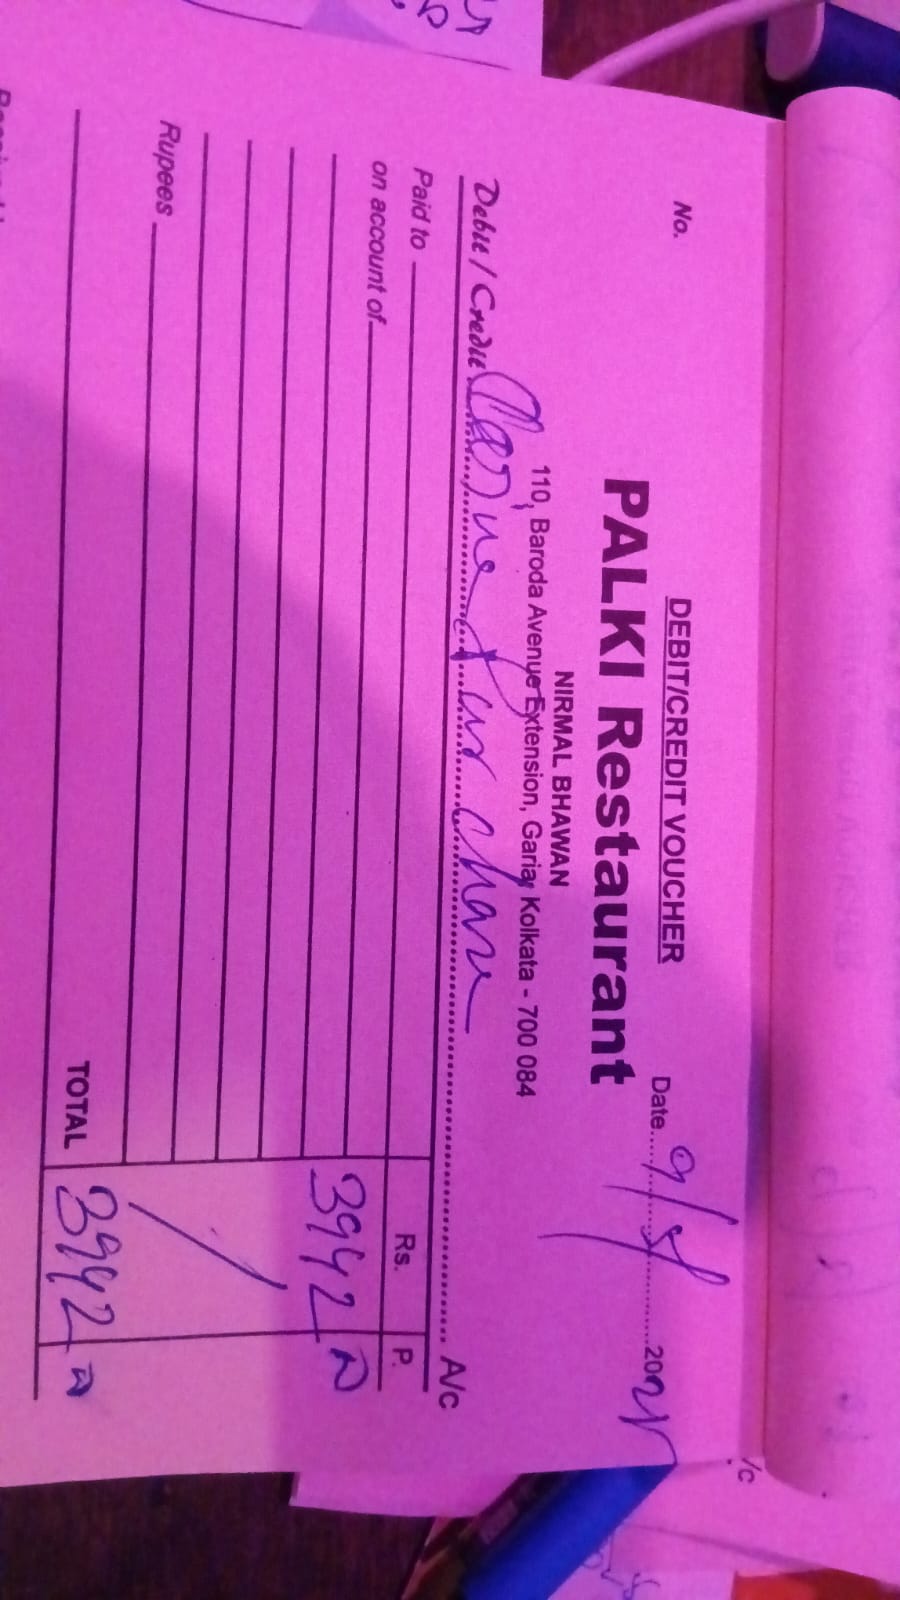 No.
DEBIT/CREDIT VOUCHER
Date 9/5/ 202
PALKI Restaurant
NIRMAL BHAWAN
110, Baroda Avenue Extension, Garia, Kolkata - 700 084
Debit / Credit A/c
Paid to
Rs. P.
on account of
3992
Rupees
TOTAL 3992
/c